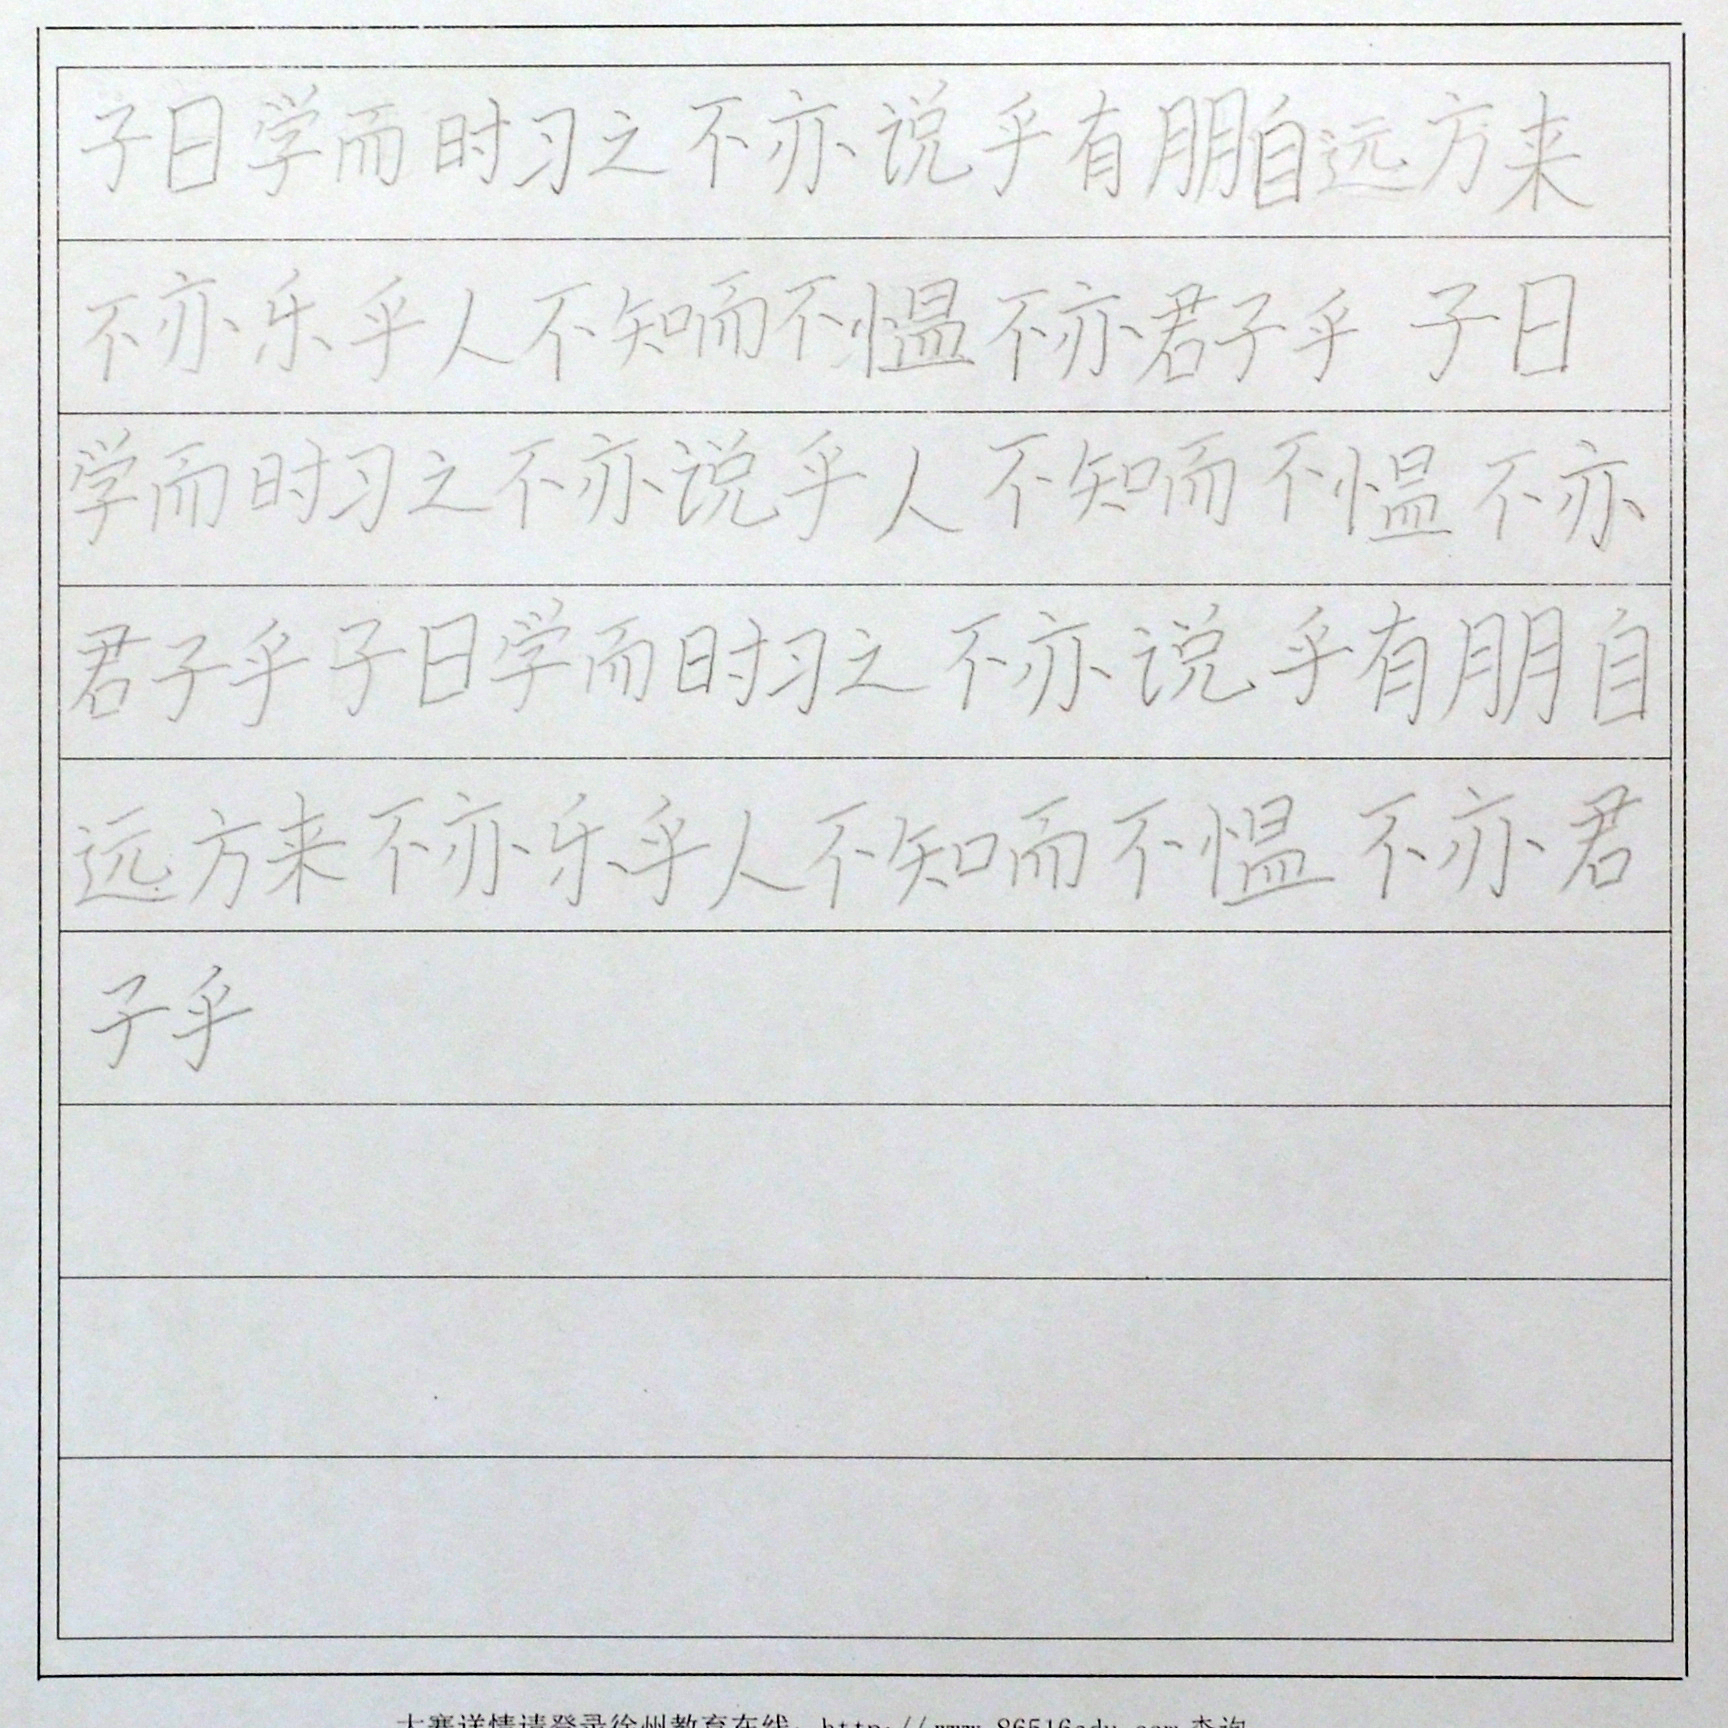 子曰学而时习之不亦说乎有朋自远方来
不亦乐乎人不知而不愠不亦君子乎 子曰
学而时习之不亦说乎人不知而不愠不亦
君子乎子曰学而时习之不亦说乎有朋自
远方来不亦乐乎人不知而不愠不亦君
子乎
大赛详情请登录徐州教育在线：http://www.86516edu.com查询